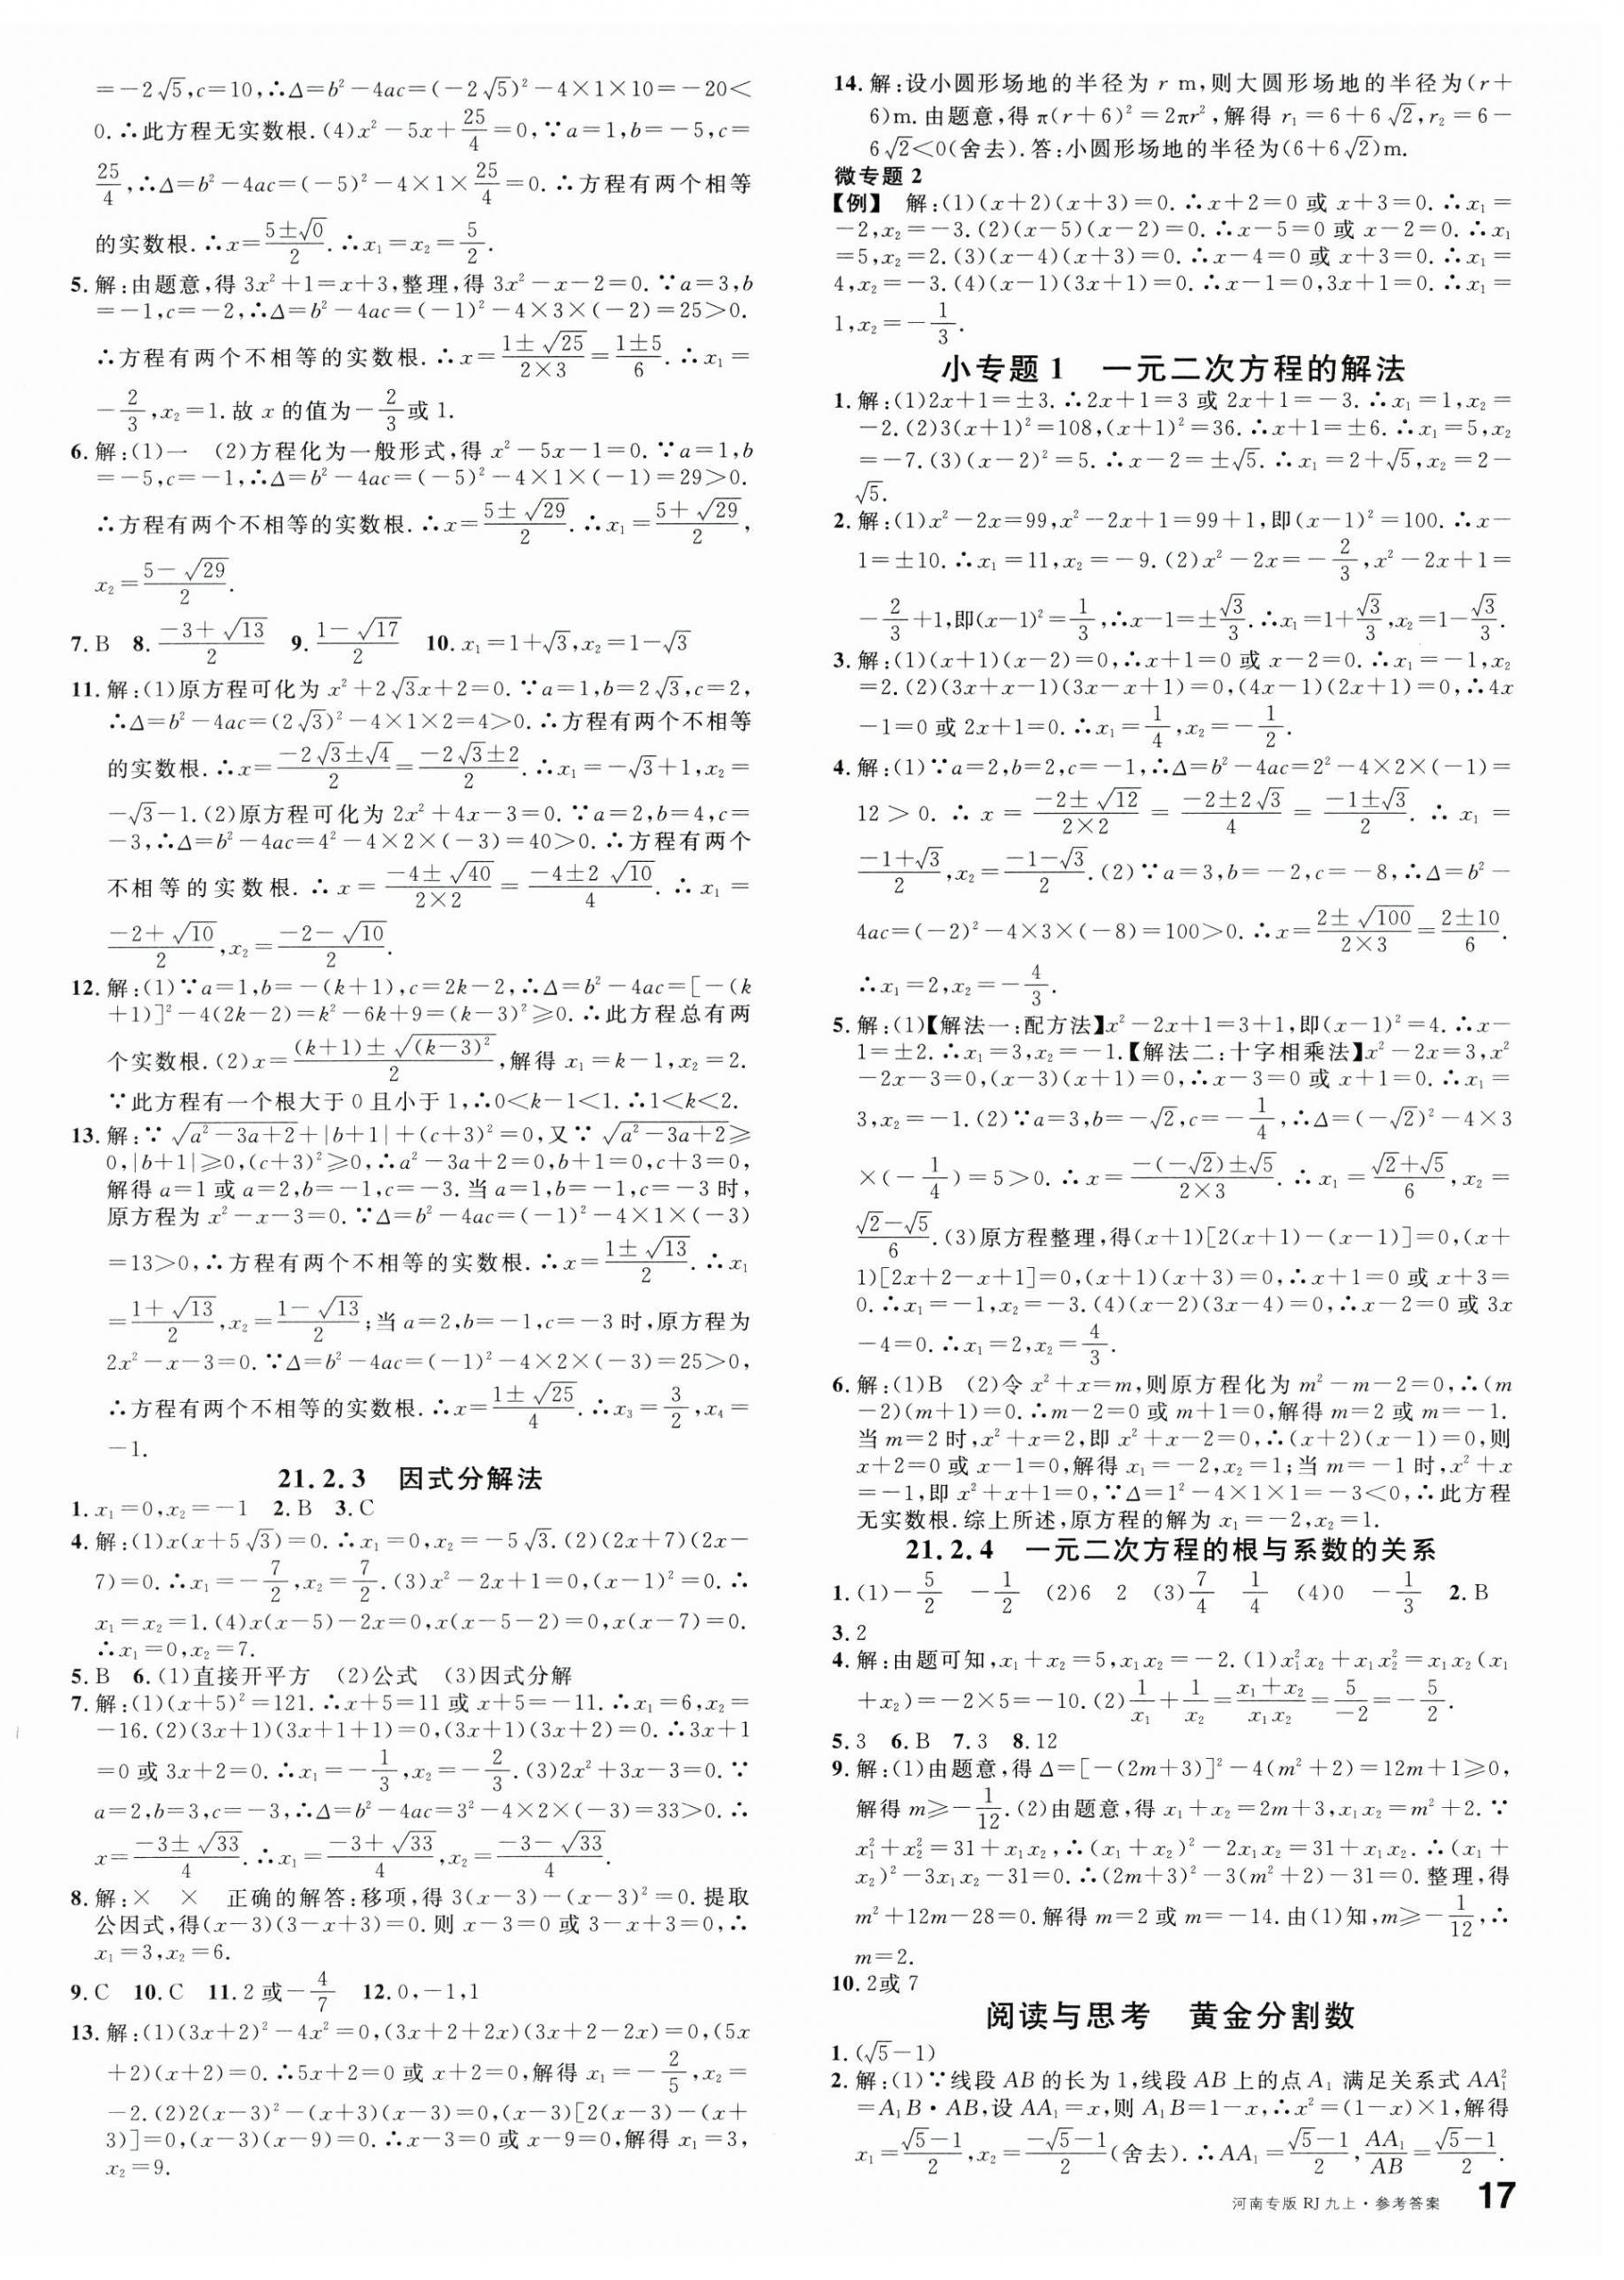 =-2√5,c=10,∴Δ=b²-4ac=(-2√5)²-4×1×10=-20<
0.∴此方程无实数根.(4)x²-5x+25/4=0,∵a=1,b=-5,c=
25/4,∴Δ=b²-4ac=(-5)²-4×1×25/4=0.∴方程有两个相等
的实数根.∴x=(5±√0)/2.∴x₁=x₂=5/2.
5.解:由题意,得3x²+1=x+3,整理,得3x²-x-2=0.∵a=3,b
=-1,c=-2,∴Δ=b²-4ac=(-1)²-4×3×(-2)=25>0.
∴方程有两个不相等的实数根.∴x=(1±√25)/(2×3)=(1±5)/6.∴x₁=
-2/3,x₂=1.故x的值为-2/3或1.
6.解:(1)一 (2)方程化为一般形式,得x²-5x-1=0.∵a=1,b
=-5,c=-1,∴Δ=b²-4ac=(-5)²-4×1×(-1)=29>0.
∴方程有两个不相等的实数根.∴x=(5±√29)/2.∴x₁=(5+√29)/2,
x₂=(5-√29)/2.
7.B 8.(-3+√13)/2 9.(1-√17)/2 10.x₁=1+√3,x₂=1-√3
11.解:(1)原方程可化为x²+2√3x+2=0.∵a=1,b=2√3,c=2,
∴Δ=b²-4ac=(2√3)²-4×1×2=4>0.∴方程有两个不相等
的实数根.∴x=(-2√3±√4)/2=(-2√3±2)/2.∴x₁=-√3+1,x₂=
-√3-1.(2)原方程可化为2x²+4x-3=0.∵a=2,b=4,c=
-3,∴Δ=b²-4ac=4²-4×2×(-3)=40>0.∴方程有两个
不相等的实数根.∴x=(-4±√40)/(2×2)=(-4±2√10)/4.∴x₁=
(-2+√10)/2,x₂=(-2-√10)/2.
12.解:(1)∵a=1,b=-(k+1),c=2k-2,∴Δ=b²-4ac=[-(k
+1)]²-4(2k-2)=k²-6k+9=(k-3)²≥0.∴此方程总有两
个实数根.(2)x=((k+1)±√(k-3)²)/2,解得x₁=k-1,x₂=2.
∵此方程有一个根大于0且小于1,∴0<k-1<1.∴1<k<2.
13.解:∵√(a²-3a+2)+|b+1|+(c+3)²=0,又∵√(a²-3a+2)≥
0,|b+1|≥0,(c+3)²≥0,∴a²-3a+2=0,b+1=0,c+3=0,
解得a=1或a=2,b=-1,c=-3.当a=1,b=-1,c=-3时,
原方程为x²-x-3=0.∵Δ=b²-4ac=(-1)²-4×1×(-3)
=13>0,∴方程有两个不相等的实数根.∴x=(1±√13)/2.∴x₁
=(1+√13)/2,x₂=(1-√13)/2;当a=2,b=-1,c=-3时,原方程为
2x²-x-3=0.∵Δ=b²-4ac=(-1)²-4×2×(-3)=25>0,
∴方程有两个不相等的实数根.∴x=(1±√25)/4.∴x₃=3/2,x₄=
-1.
21.2.3 因式分解法
1.x₁=0,x₂=-1 2.B 3.C
4.解:(1)x(x+5√3)=0.∴x₁=0,x₂=-5√3.(2)(2x+7)(2x-
7)=0.∴x₁=-7/2,x₂=7/2.(3)x²-2x+1=0,(x-1)²=0.∴
x₁=x₂=1.(4)x(x-5)-2x=0,x(x-5-2)=0,x(x-7)=0.
∴x₁=0,x₂=7.
5.B 6.(1)直接开平方 (2)公式 (3)因式分解
7.解:(1)(x+5)²=121.∴x+5=11或x+5=-11.∴x₁=6,x₂=
-16.(2)(3x+1)(3x+1+1)=0,(3x+1)(3x+2)=0.∴3x+1
=0或3x+2=0.∴x₁=-1/3,x₂=-2/3.(3)2x²+3x-3=0.∵
a=2,b=3,c=-3,∴Δ=b²-4ac=3²-4×2×(-3)=33>0.∴
x=(-3±√33)/4.∴x₁=(-3+√33)/4,x₂=(-3-√33)/4.
8.解:× × 正确的解答:移项,得3(x-3)-(x-3)²=0.提取
公因式,得(x-3)(3-x+3)=0.则x-3=0或3-x+3=0,∴
x₁=3,x₂=6.
9.C 10.C 11.2或-4/7 12.0,-1,1
13.解:(1)(3x+2)²-4x²=0,(3x+2+2x)(3x+2-2x)=0,(5x
+2)(x+2)=0.∴5x+2=0或x+2=0,解得x₁=-2/5,x₂=
-2.(2)2(x-3)²-(x+3)(x-3)=0,(x-3)[2(x-3)-(x+
3)]=0,(x-3)(x-9)=0.∴x-3=0或x-9=0,解得x₁=3,
x₂=9.
14.解:设小圆形场地的半径为r m,则大圆形场地的半径为(r+
6)m.由题意,得π(r+6)²=2πr²,解得r₁=6+6√2,r₂=6-
6√2<0(舍去).答:小圆形场地的半径为(6+6√2)m.
微专题2
【例】 解:(1)(x+2)(x+3)=0.∴x+2=0或x+3=0.∴x₁=
-2,x₂=-3.(2)(x-5)(x-2)=0.∴x-5=0或x-2=0.∴x₁
=5,x₂=2.(3)(x-4)(x+3)=0.∴x-4=0或x+3=0.∴x₁=
4,x₂=-3.(4)(x-1)(3x+1)=0.∴x-1=0,3x+1=0.∴x₁=
1,x₂=-1/3.
小专题1 一元二次方程的解法
1.解:(1)2x+1=±3.∴2x+1=3或2x+1=-3.∴x₁=1,x₂=
-2.(2)3(x+1)²=108,(x+1)²=36.∴x+1=±6.∴x₁=5,x₂
=-7.(3)(x-2)²=5.∴x-2=±√5.∴x₁=2+√5,x₂=2-
√5.
2.解:(1)x²-2x=99,x²-2x+1=99+1,即(x-1)²=100.∴x-
1=±10.∴x₁=11,x₂=-9.(2)x²-2x=-2/3,x²-2x+1=
-2/3+1,即(x-1)²=1/3,∴x-1=±√3/3.∴x₁=1+√3/3,x₂=1-√3/3.
3.解:(1)(x+1)(x-2)=0,∴x+1=0或x-2=0.∴x₁=-1,x₂
=2.(2)(3x+x-1)(3x-x+1)=0,(4x-1)(2x+1)=0,∴4x
-1=0或2x+1=0.∴x₁=1/4,x₂=-1/2.
4.解:(1)∵a=2,b=2,c=-1,∴Δ=b²-4ac=2²-4×2×(-1)=
12>0.∴x=(-2±√12)/(2×2)=(-2±2√3)/4=(-1±√3)/2.∴x₁=
(-1+√3)/2,x₂=(-1-√3)/2.(2)∵a=3,b=-2,c=-8,∴Δ=b²-
4ac=(-2)²-4×3×(-8)=100>0.∴x=(2±√100)/(2×3)=(2±10)/6.
∴x₁=2,x₂=-4/3.
5.解:(1)【解法一:配方法】x²-2x+1=3+1,即(x-1)²=4.∴x-
1=±2.∴x₁=3,x₂=-1.【解法二:十字相乘法】x²-2x=3,x²
-2x-3=0,(x-3)(x+1)=0,∴x-3=0或x+1=0.∴x₁=
3,x₂=-1.(2)∵a=3,b=-√2,c=-1/4,∴Δ=(-√2)²-4×3
×(-1/4)=5>0.∴x=(-(-√2)±√5)/(2×3).∴x₁=(√2+√5)/6,x₂=
(√2-√5)/6.(3)原方程整理,得(x+1)[2(x+1)-(x-1)]=0,(x+
1)[2x+2-x+1]=0,(x+1)(x+3)=0,∴x+1=0或x+3=
0.∴x₁=-1,x₂=-3.(4)(x-2)(3x-4)=0,∴x-2=0或3x
-4=0.∴x₁=2,x₂=4/3.
6.解:(1)B (2)令x²+x=m,则原方程化为m²-m-2=0,∴(m
-2)(m+1)=0.∴m-2=0或m+1=0,解得m=2或m=-1.
当m=2时,x²+x=2,即x²+x-2=0,∴(x+2)(x-1)=0,则
x+2=0或x-1=0,解得x₁=-2,x₂=1;当m=-1时,x²+x
=-1,即x²+x+1=0,∵Δ=1²-4×1×1=-3<0,∴此方程
无实数根.综上所述,原方程的解为x₁=-2,x₂=1.
21.2.4 一元二次方程的根与系数的关系
1.(1)-5/2 -1/2 (2)6 2 (3)7/4 1/4 (4)0 -1/3 2.B
3.2
4.解:由题可知,x₁+x₂=5,x₁x₂=-2.(1)x₁²x₂+x₁x₂²=x₁x₂(x₁
+x₂)=-2×5=-10.(2)1/x₁+1/x₂=(x₁+x₂)/(x₁x₂)=5/(-2)=-5/2.
5.3 6.B 7.3 8.12
9.解:(1)由题意,得Δ=[-(2m+3)]²-4(m²+2)=12m+1≥0,
解得m≥-1/12.(2)由题意,得x₁+x₂=2m+3,x₁x₂=m²+2.∵
x₁²+x₂²=31+x₁x₂,∴(x₁+x₂)²-2x₁x₂=31+x₁x₂.∴(x₁+
x₂)²-3x₁x₂-31=0.∴(2m+3)²-3(m²+2)-31=0.整理,得
m²+12m-28=0.解得m=2或m=-14.由(1)知,m≥-1/12,∴
m=2.
10.2或7
阅读与思考 黄金分割数
1.(√5-1)
2.解:(1)∵线段AB的长为1,线段AB上的点A₁满足关系式AA₁²
=A₁B·AB,设AA₁=x,则A₁B=1-x,∴x²=(1-x)×1,解得
x₁=(√5-1)/2,x₂=(-√5-1)/2(舍去).∴AA₁=(√5-1)/2,AA₁/AB=(√5-1)/2.
河南专版 RJ 九上·参考答案 17